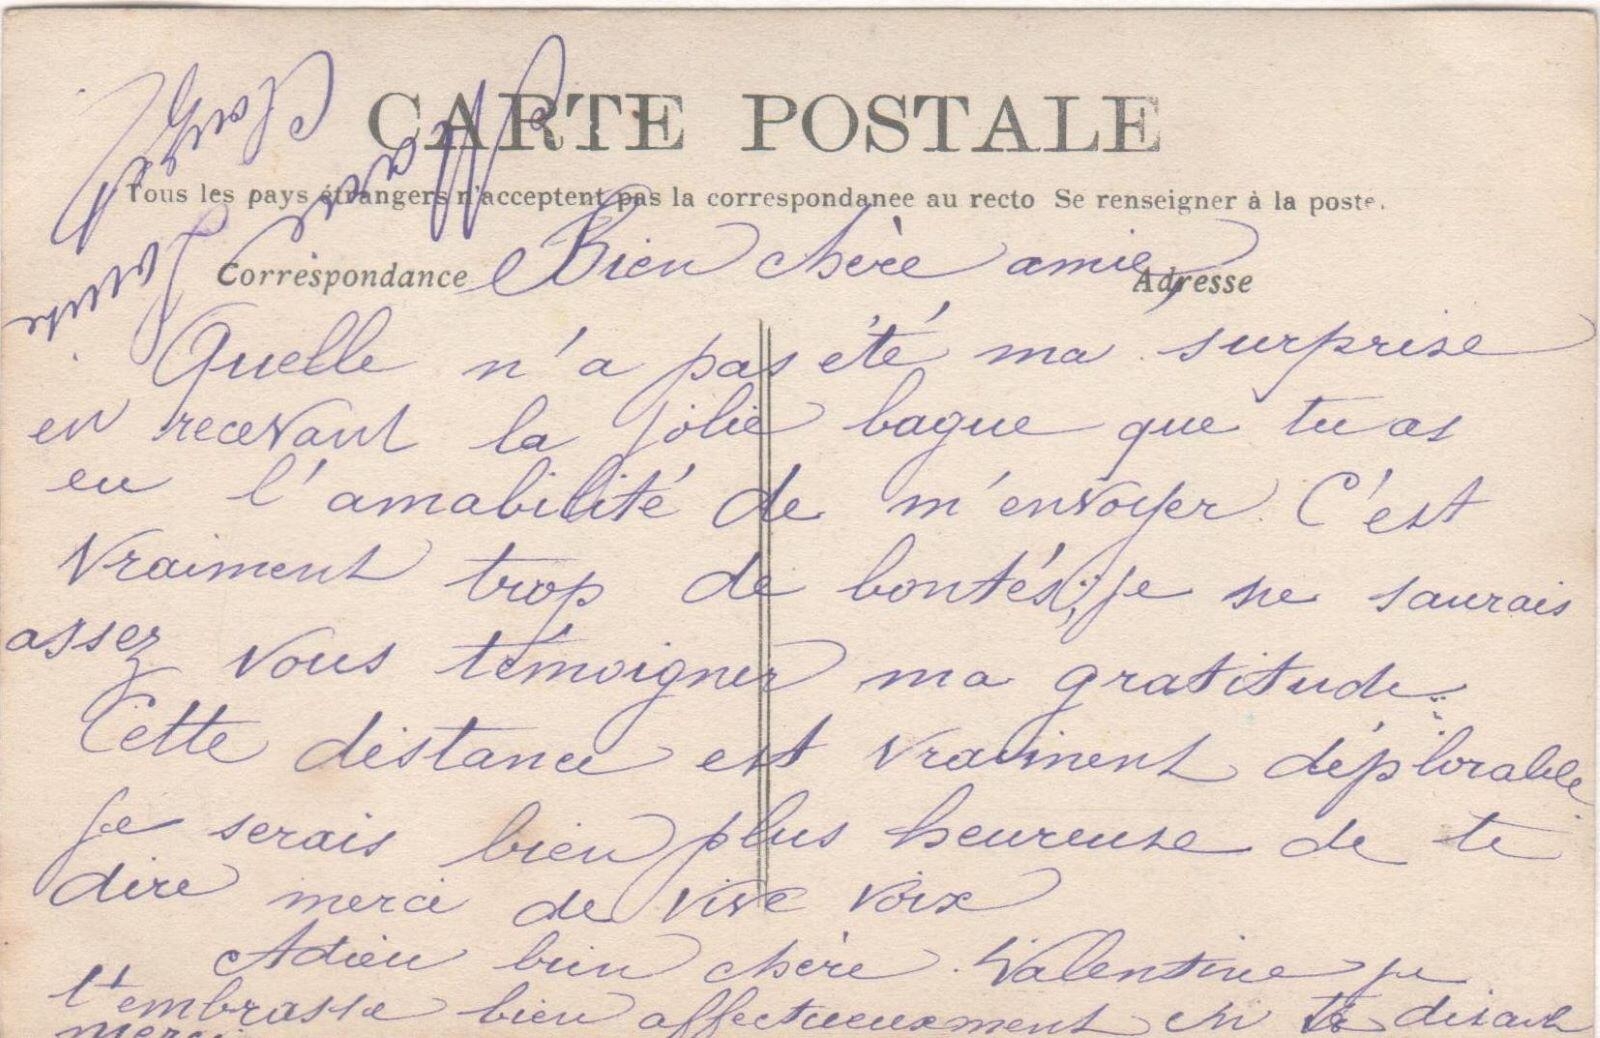 CARTE POSTALE
Tous les pays étrangers n'acceptent pas la correspondanee au recto Se renseigner à la poste.
Correspondance
Adresse
Bien chère amie,
Quelle n'a pas été ma surprise
en recevant la jolie bague que tu as
eu l'amabilité de m'envoyer. C'est
vraiment trop de bontés, je ne saurais
assez vous témoigner ma gratitude.
Cette distance est vraiment déplorable
je serais bien plus heureuse de te
dire merci de vive voix
Adieu bien chère Valentine je
t'embrasse bien affectueusement en te disant
merci
Louise